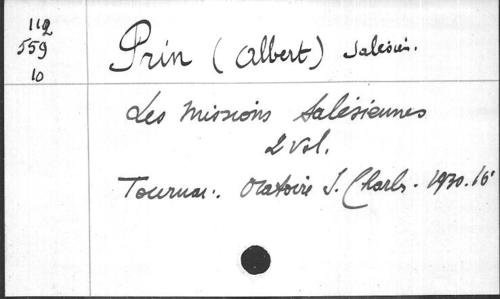 112
559
10
Prin (Albert) Salésien.
Les Missions Salésiennes
2 vol.
Tournai. Oratoire S. Charles. 1930. 16°